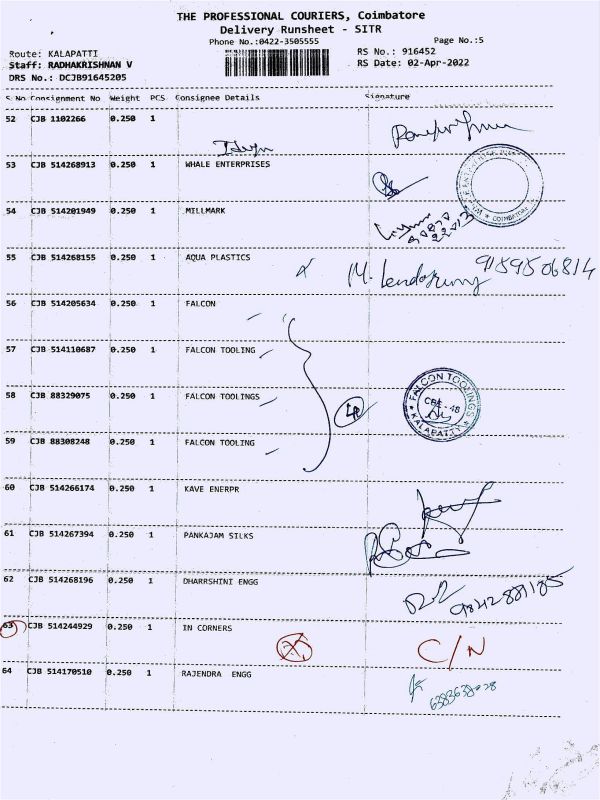 THE PROFESSIONAL COURIERS, Coimbatore
Delivery Runsheet - SITR
Phone No.:0422-3505555 Page No.:5
Route: KALAPATTI RS No.: 916452
Staff: RADHAKRISHNAN V RS Date: 02-Apr-2022
DRS No.: DCJB91645205
S.No Consignment No Weight PCS Consignee Details Signature
52 CJB 1102266 0.250 1
53 CJB 514268913 0.250 1 WHALE ENTERPRISES
COIMBATORE
54 CJB 514201949 0.250 1 MILLMARK
55 CJB 514268155 0.250 1 AQUA PLASTICS 9159506814
56 CJB 514205634 0.250 1 FALCON
57 CJB 514110687 0.250 1 FALCON TOOLING
58 CJB 88329075 0.250 1 FALCON TOOLINGS
4
FALCON TOOLINGS
CBE - 48
KALAPATTY
59 CJB 88308248 0.250 1 FALCON TOOLING
60 CJB 514266174 0.250 1 KAVE ENERPR
61 CJB 514267394 0.250 1 PANKAJAM SILKS
62 CJB 514268196 0.250 1 DHARRSHINI ENGG
63 CJB 514244929 0.250 1 IN CORNERS C/N
64 CJB 514170510 0.250 1 RAJENDRA ENGG